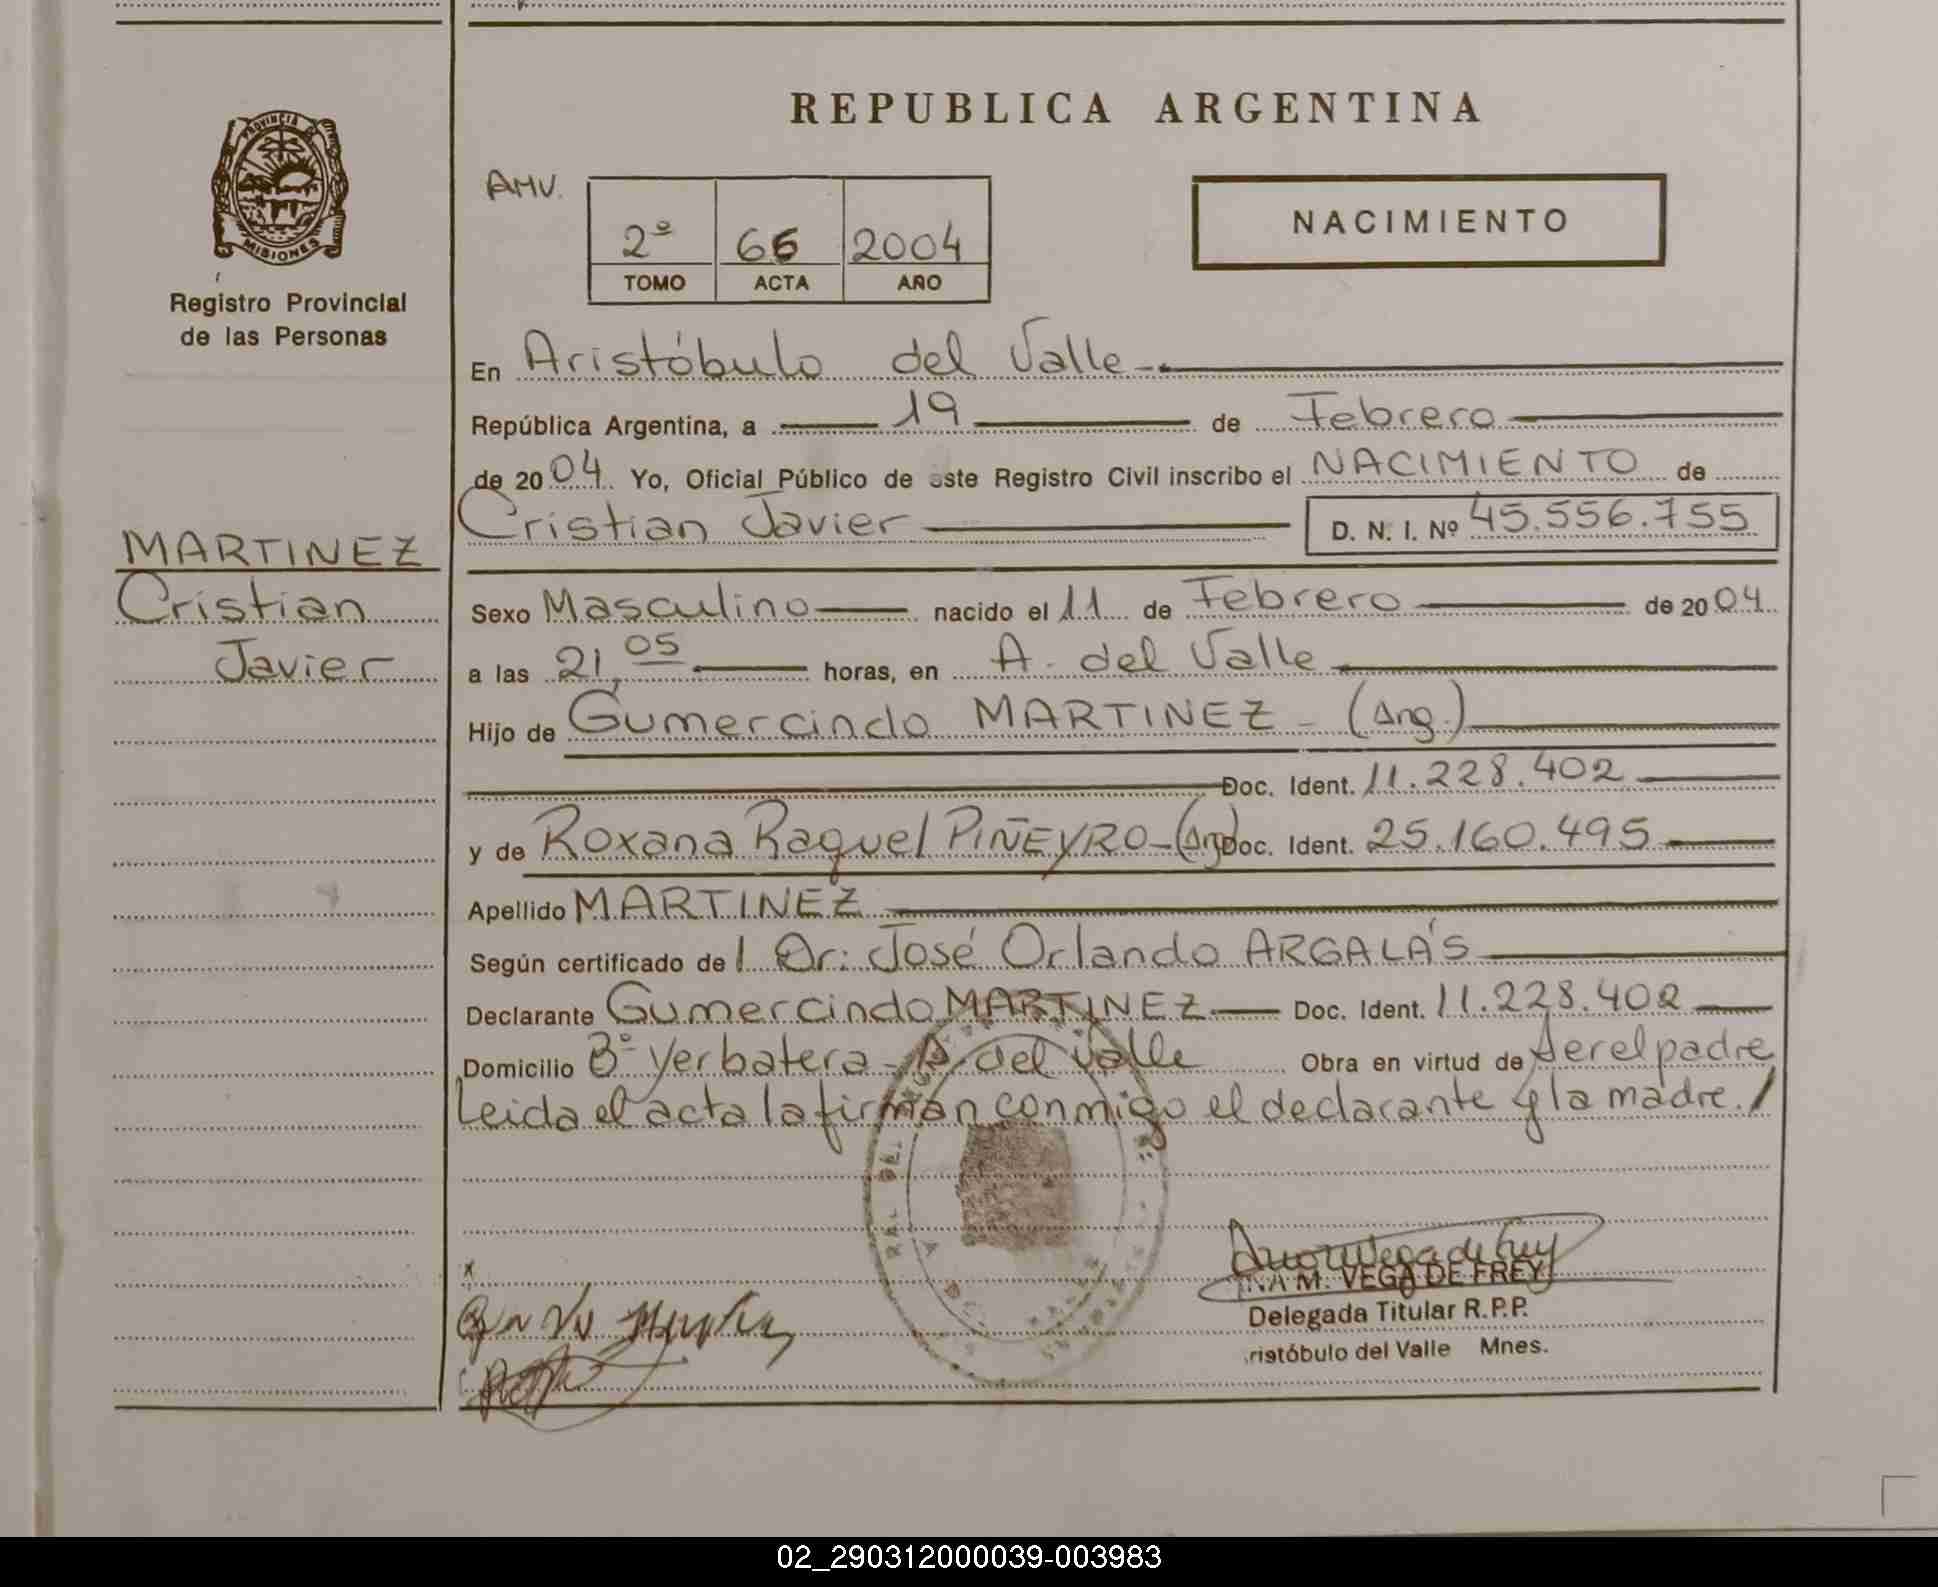 REPUBLICA ARGENTINA
PROVINCIA DE
MISIONES
Registro Provincial
de las Personas
AMV.
2º 66 2004
TOMO ACTA AÑO
NACIMIENTO
En Aristóbulo del Valle
República Argentina, a 19 de Febrero
de 2004 Yo, Oficial Público de este Registro Civil inscribo el NACIMIENTO de
Cristian Javier D. N. I. Nº 45.556.755
MARTINEZ
Cristian
Javier
Sexo Masculino nacido el 11 de Febrero de 2004
a las 21,05 horas, en A. del Valle
Hijo de Gumercindo MARTINEZ - (Arg.)
Doc. Ident. 11.228.402
y de Roxana Raquel PIÑEYRO-(Arg) Doc. Ident. 25.160.495
Apellido MARTINEZ
Según certificado del Dr: José Orlando ARGALÁS
Declarante Gumercindo MARTINEZ Doc. Ident. 11.228.402
Domicilio Bº Yerbatera - A. del Valle Obra en virtud de ser el padre
Leida el acta la firman conmigo el declarante y la madre./
M. VEGA DE FREY
Delegada Titular R.P.P.
ristóbulo del Valle Mnes.
02_290312000039-003983